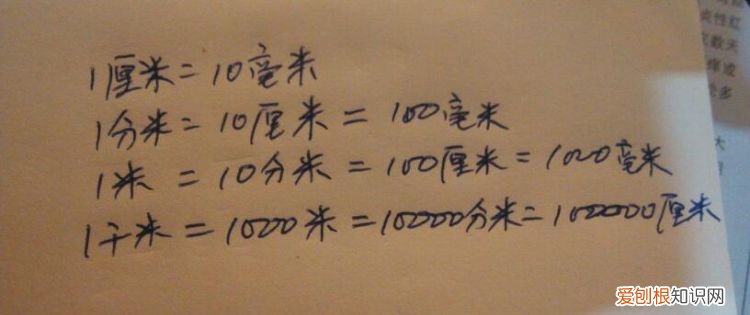 1厘米=10毫米
1分米=10厘米=100毫米
1米=10分米=100厘米=1000毫米
1千米=1000米=10000分米=100000厘米
性红
数天
痒或
多
大
爱刨根知识网